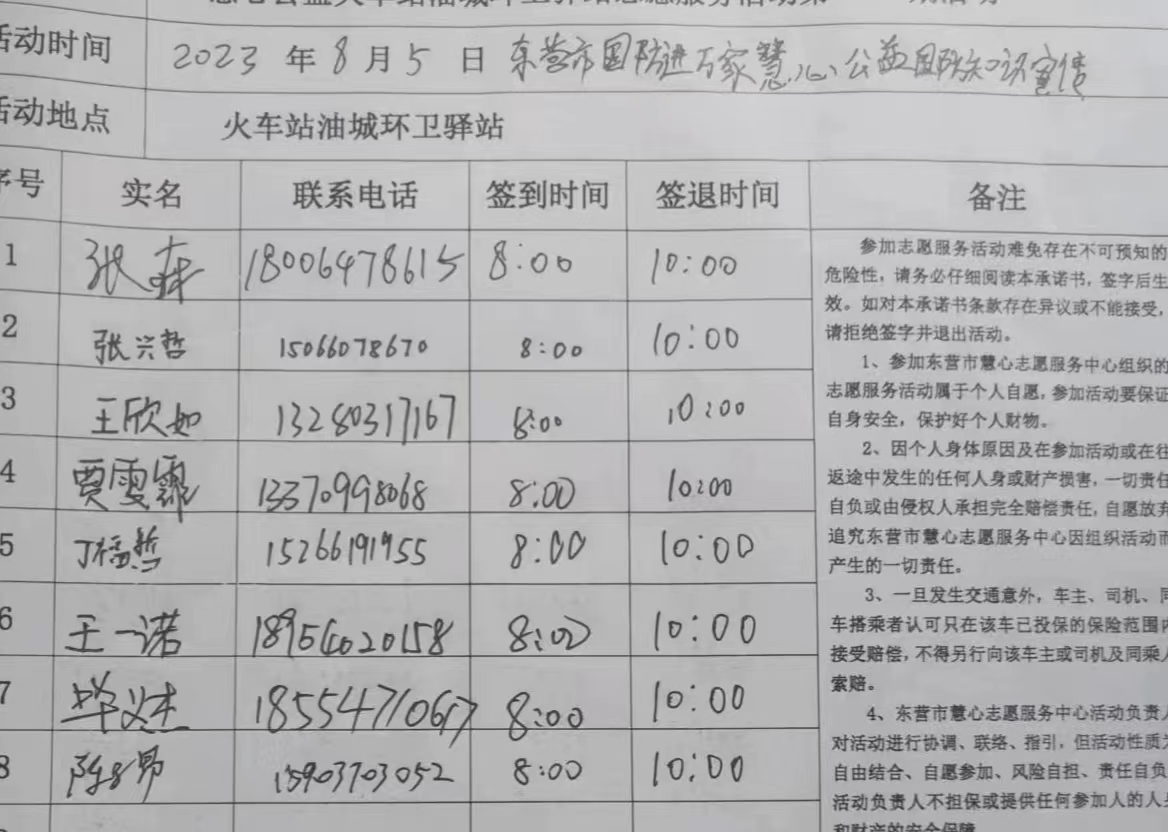 活动时间 2023 年 8 月 5 日 东营市国防进万家慧心公益国防知识宣传
活动地点 火车站油城环卫驿站
序号 实名 联系电话 签到时间 签退时间 备注
1 张森 18006478615 8:00 10:00
2 张兴哲 15066078670 8:00 10:00
3 王欣如 13280317167 8:00 10:00
4 贾雯霏 13370998068 8:00 10:00
5 丁福哲 15266191955 8:00 10:00
6 王一诺 18954020158 8:00 10:00
7 毕义杰 8:00 10:00
8 15903703052 8:00 10:00
参加志愿服务活动难免存在不可预知的
危险性，请务必仔细阅读本承诺书，签字后生
效。如对本承诺书条款存在异议或不能接受，
请拒绝签字并退出活动。
1、参加东营市慧心志愿服务中心组织的
志愿服务活动属于个人自愿，参加活动要保证
自身安全，保护好个人财物。
2、因个人身体原因及在参加活动或在往
返途中发生的任何人身或财产损害，一切责任
自负或由侵权人承担完全赔偿责任，自愿放弃
追究东营市慧心志愿服务中心因组织活动而
产生的一切责任。
3、一旦发生交通意外，车主、司机、同
车搭乘者认可只在该车已投保的保险范围内
接受赔偿，不得另行向该车主或司机及同乘人
索赔。
4、东营市慧心志愿服务中心活动负责人
对活动进行协调、联络、指引，但活动性质为
自由结合、自愿参加、风险自担、责任自负
活动负责人不担保或提供任何参加人的人身
和财产的安全保障